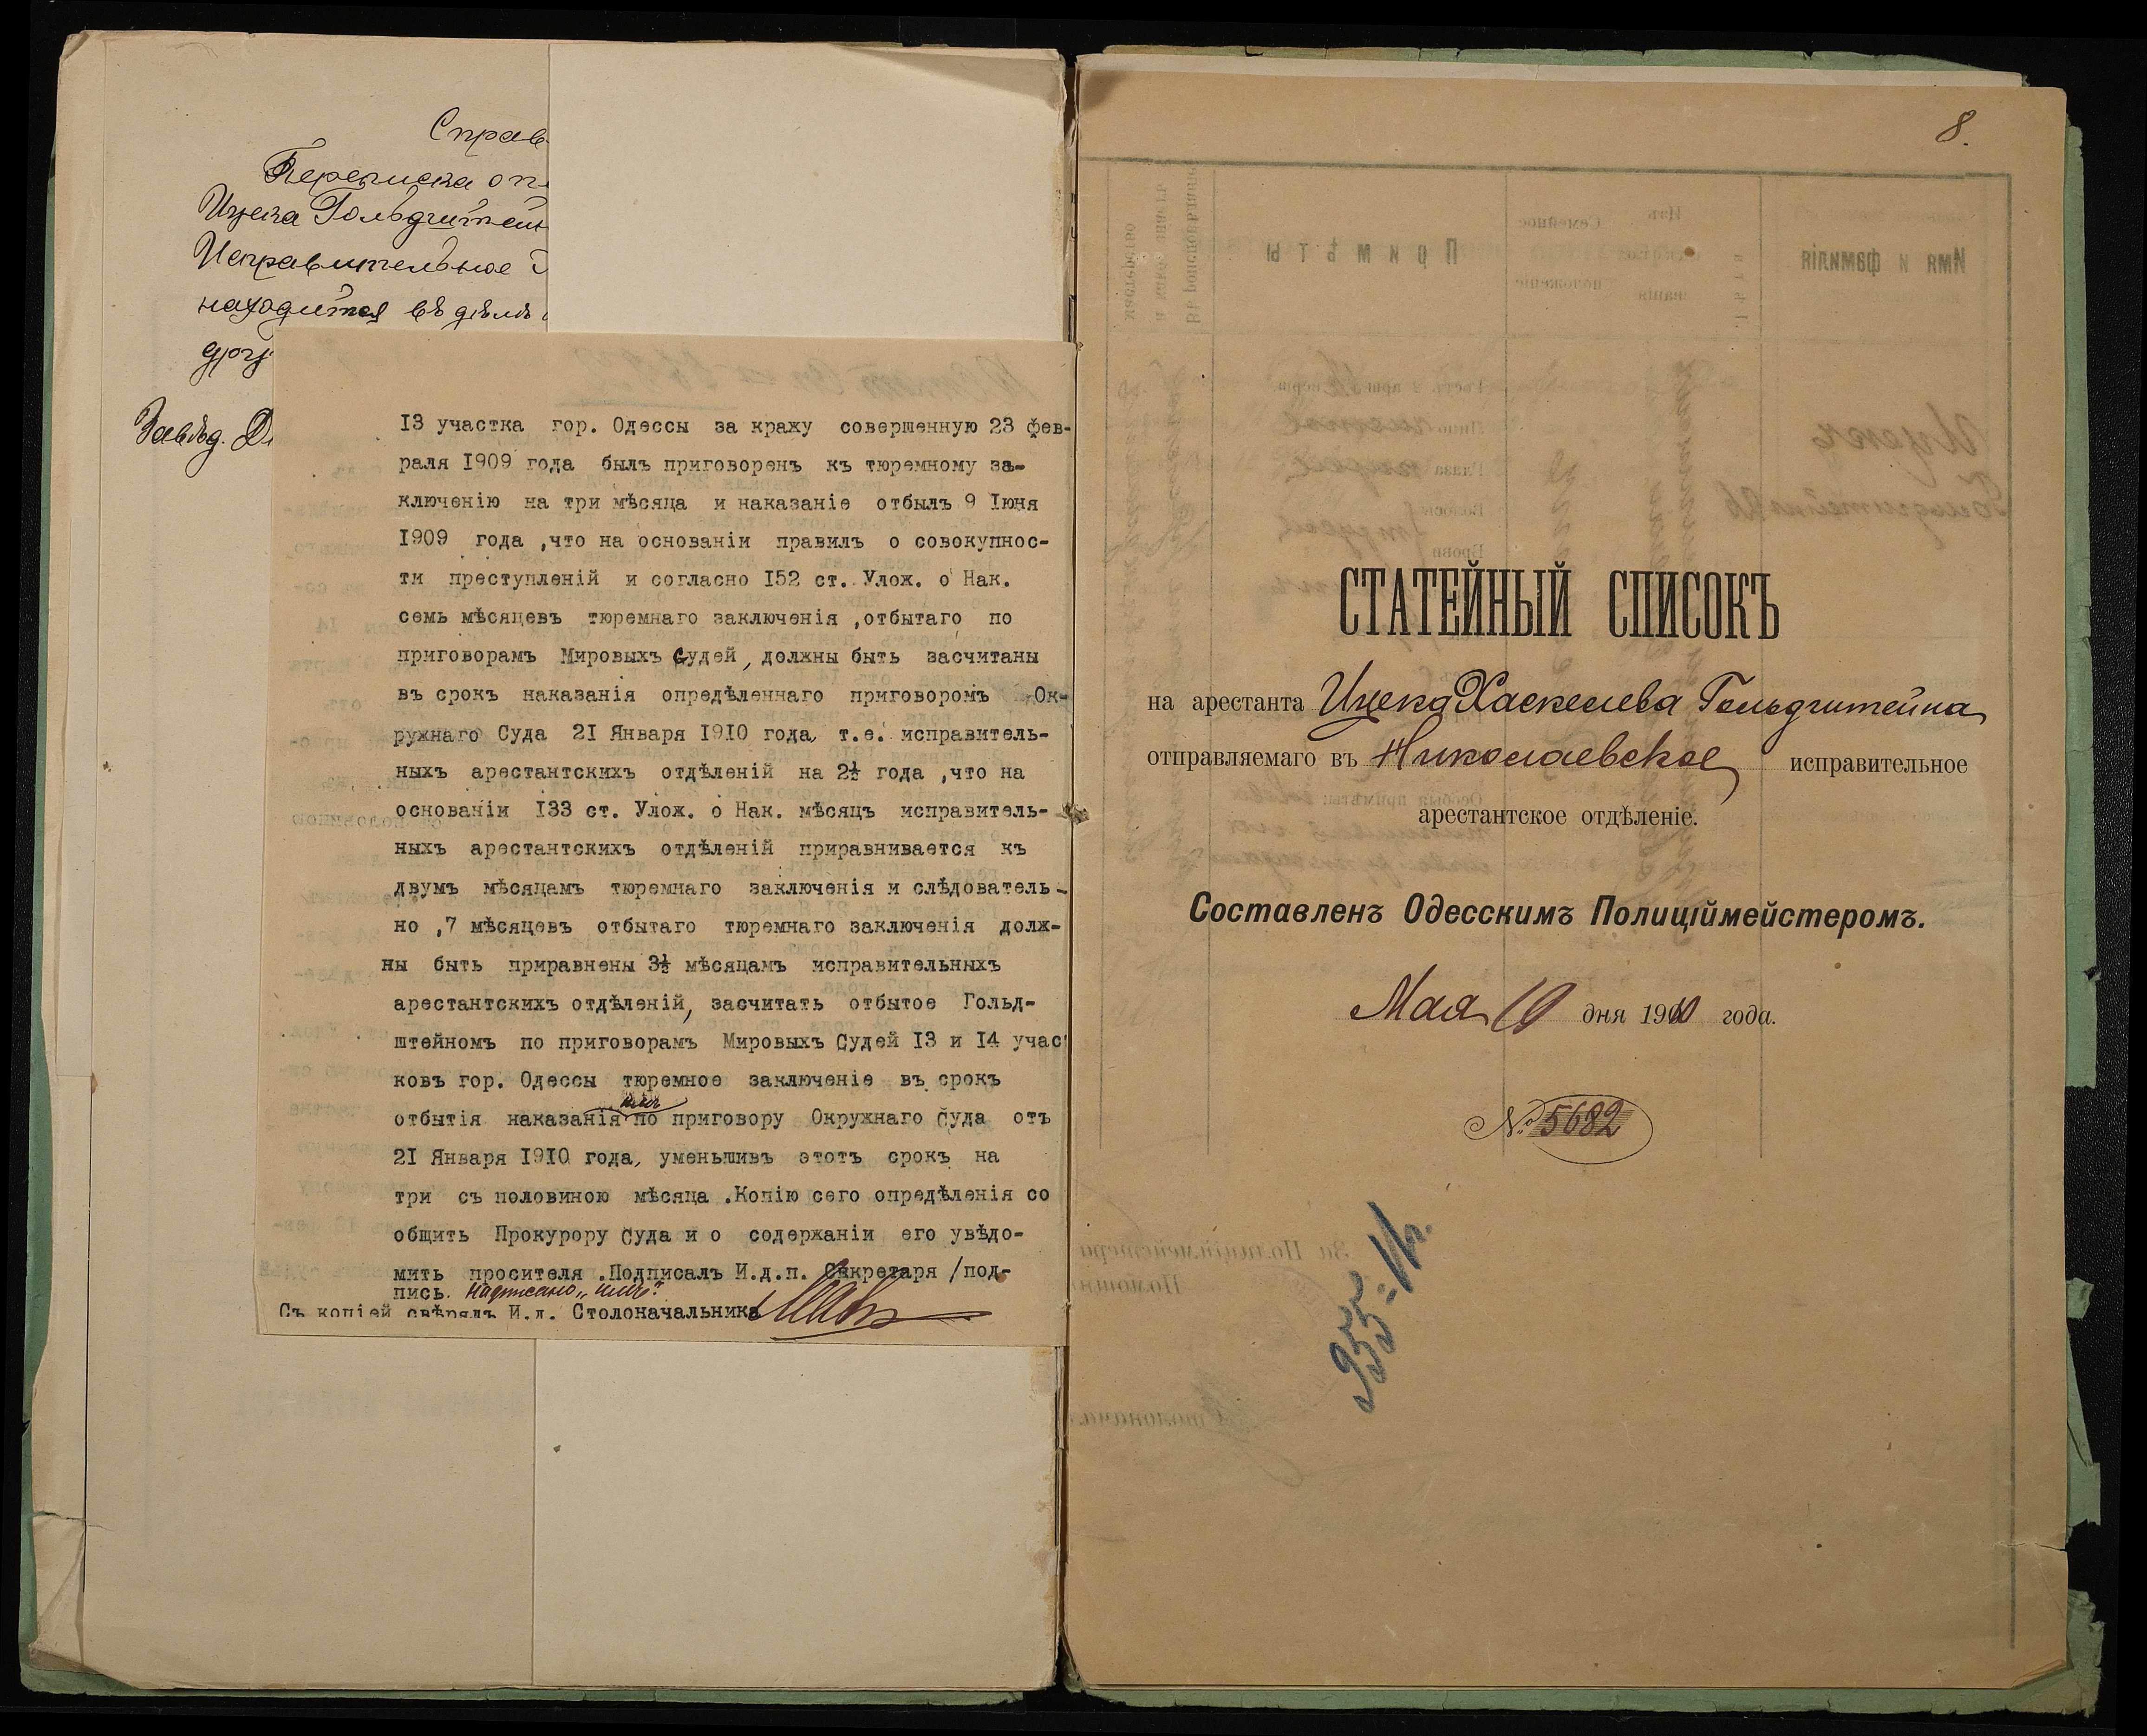 Справ
Переписка о п
Ицека Гольдштейн
Исправительное
находится въ дѣлѣ
Завѣд.
13 участка гор. Одессы за кражу совершенную 23 фев-
раля 1909 года былъ приговоренъ къ тюремному за-
ключенію на три мѣсяца и наказаніе отбылъ 9 Іюня
1909 года ,что на основаніи правилъ о совокупнос-
ти преступленій и согласно 152 ст. Улож. о Нак.
семь мѣсяцевъ тюремнаго заключенія ,отбытаго по
приговорамъ Мировыхъ Судей, должны быть засчитаны
въ срокъ наказанія опредѣленнаго приговоромъ Ок-
ружнаго Суда 21 Января 1910 года, т.е. исправитель-
ныхъ арестантскихъ отдѣленій на 2½ года ,что на
основаніи 133 ст. Улож. о Нак. мѣсяцъ исправитель-
ныхъ арестантскихъ отдѣленій приравнивается къ
двумъ мѣсяцамъ тюремнаго заключенія и слѣдователь-
но ,7 мѣсяцевъ отбытаго тюремнаго заключенія долж-
ны быть приравнены 3½ мѣсяцамъ исправительныхъ
арестантскихъ отдѣленій, засчитать отбытое Гольд-
штейномъ по приговорамъ Мировыхъ Судей 13 и 14 учас
ковъ гор. Одессы тюремное заключеніе въ срокъ
имъ
отбытія наказанія по приговору Окружнаго Суда отъ
21 Января 1910 года, уменьшивъ этотъ срокъ на
три съ половиною мѣсяца .Копію сего опредѣленія со
общить Прокурору Суда и о содержаніи его увѣдо-
мить просителя .Подписалъ И.д.п. Секретаря /под-
пись. Надписано „имъ".
Съ копіей свѣрялъ И.д. Столоначальника
8.
СТАТЕЙНЫЙ СПИСОКЪ
на арестанта Ицека Хаскелева Гольдштейна
отправляемаго въ Николаевское исправительное
арестантское отдѣленіе.
Составленъ Одесскимъ Полиціймейстеромъ.
Мая 10 дня 1910 года.
№ 5682